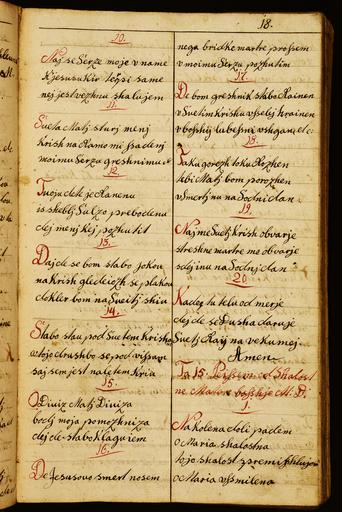 18.
10.
Naj se Serze moje v name
K jesusu kir tèpsi same
nej jest vezknu skalujem
11.
Sveta Matj sturj menj
krish na Ramo mi psadenj
moimu Serzu greshnimu
12.
Tvoju dete je Ranenu
is skeblj Sulzo prebodenu
dej menj kej pokutit
13.
Daj de se bom stabo jokou
na Krish gledeiozh se plakou
dokler bom na Sveitj shiu
14.
Stabo stau pod Suetem Krisho
utojo drushbo se pod vissau
saj sem jest na letem kriu
15.
O Diviz Matj Diviza
bodj moja pomozhniza
dej de stabo klagujem
16.
De Jesusovo smert nosem
nega bridke martre prossem
v moimu Serzu pozhutim
17.
De bom greshnik stabo Rainen
v Suetim krishu vsselej hrainen
v boshjj lubesni vshgan
18.
Taku gorezh toku Rozhen
tebi Matj bom porozhen
v Smertj nu na Sodni dan
19.
Naj me Suetj krish obvarje
streshne martre mo obvarje
sdej inu na Sodnj dan
20.
Kadeg tu telu od merje
dej de se Dusha daruje
Suetj Raj nu vekumej.
Amen.
Ta 15. Peissem od Shalost
ne Marie boshje M: D:
1.
Na kolena doli padem
o Maria shalostna
tojo shalost
o Maria vssmilena